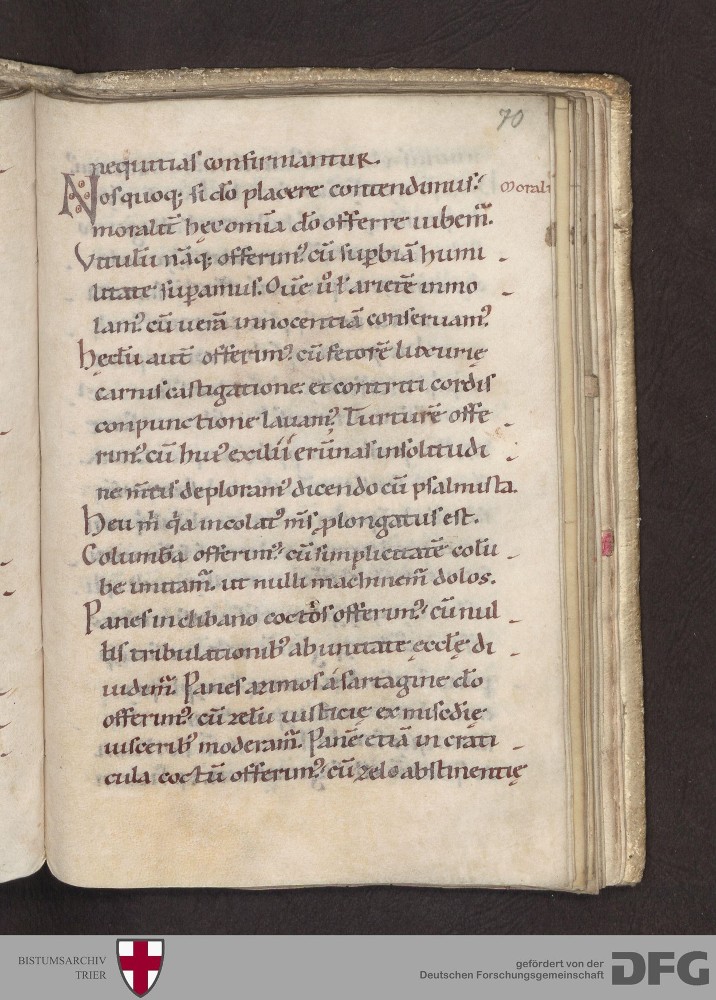 70
nequitias confirmantur.
Nosquoq; si dō placere contendimus᾿
Morali
moralit̄ hęc om̄ia dō offerre iubem᷒.
Vitulū nāq; offerim᷒ cū suꝑbiā humi
litate suꝑamus. Ouē ūł arietē inmo
lam᷒ cū uerā innocentiā conseruam᷒
hędū aut̄ offerim᷒ cū fetorē luxurię
carnis castigatione. et contriti cordis
conpunctione lauam᷒. Turturē offe
rim᷒ cū hui᷒ exilii erūnas insolitudi
ne m̄tis deploram᷒ dicendo cū psalmista.
heu m̄ q̄a incolat᷒ m̄s ꝓlongatus est.
Columbā offerim᷒ cū simplicitatē colū
be imitam᷒. ut nulli machinem᷒ dolos.
Panes inclibano coctos offerim᷒ cū nul
lis tribulationib᷒ ab unitate ęccłę di
uidim᷒. Panes azimos á sartagine dō
offerim᷒ cū zelū iusticię ex mis̄c̄dię
uiscerib᷒ moderam᷒. Panē etiā in crati
cula coctū offerim᷒ cū zelo abstinentię
BISTUMSARCHIV
TRIER
gefördert von der
Deutschen Forschungsgemeinschaft
DFG